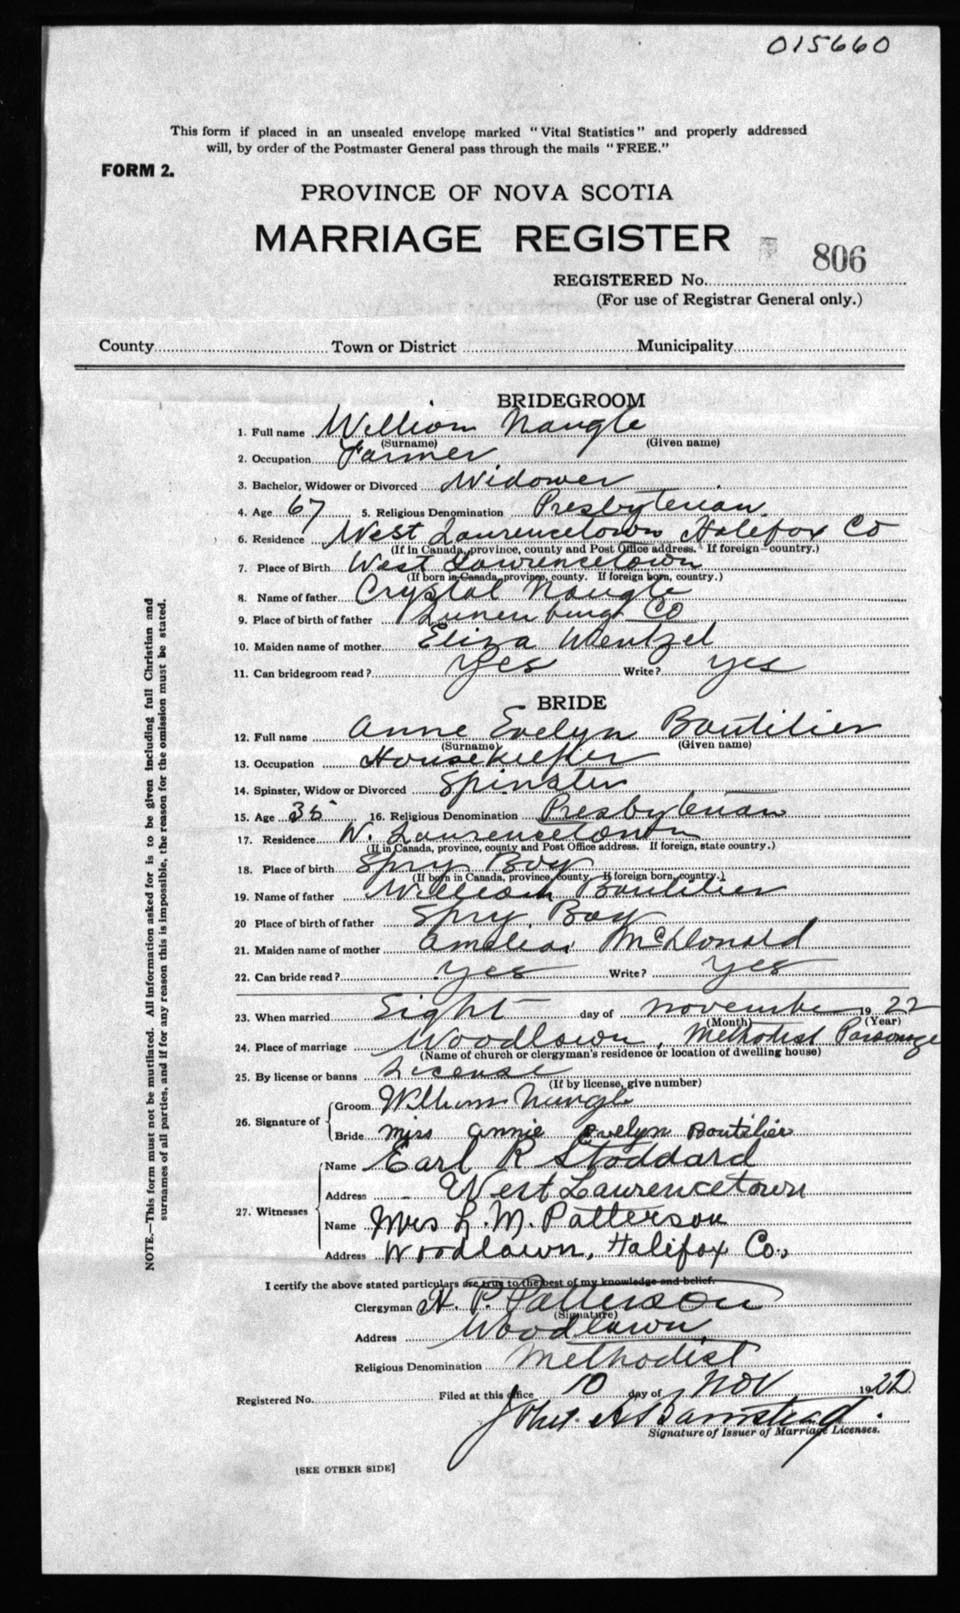 015660
This form if placed in an unsealed envelope marked "Vital Statistics" and properly addressed
will, by order of the Postmaster General pass through the mails "FREE."
FORM 2.
PROVINCE OF NOVA SCOTIA
MARRIAGE REGISTER
806
REGISTERED No.
(For use of Registrar General only.)
County Town or District Municipality
BRIDEGROOM
1. Full name William Naugle
(Surname) (Given name)
2. Occupation Farmer
3. Bachelor, Widower or Divorced Widower
4. Age 67 5. Religious Denomination Presbyterian
6. Residence West Lawrencetown Halifax Co
(If in Canada, province, county and Post Office address. If foreign country.)
7. Place of Birth West Lawrencetown
(If born in Canada, province, county. If foreign born, country.)
8. Name of father Crystal Naugle
9. Place of birth of father Lunenburg Co
10. Maiden name of mother Eliza Wentzel
11. Can bridegroom read? Yes Write? yes
BRIDE
12. Full name Anne Evelyn Boutilier
(Surname) (Given name)
13. Occupation Housekeeper
14. Spinster, Widow or Divorced Spinster
15. Age 35 16. Religious Denomination Presbyterian
17. Residence W. Lawrencetown
(If in Canada, province, county and Post Office address. If foreign, state country.)
18. Place of birth Spry Bay
(If born in Canada, province, county. If foreign born, country.)
19. Name of father William Boutilier
20 Place of birth of father Spry Bay
21. Maiden name of mother Amelia McDonald
22. Can bride read? yes Write? yes
23. When married Eight day of November 1922
(Month) (Year)
24. Place of marriage Woodlawn, Methodist Parsonage
(Name of church or clergyman's residence or location of dwelling house)
25. By license or banns License
(If by license, give number)
26. Signature of Groom William Naugle
Bride Miss Annie Evelyn Boutilier
27. Witnesses Name Earl R Stoddard
Address West Lawrencetown
Name Mrs L. M. Patterson
Address Woodlawn, Halifax Co.,
I certify the above stated particulars are true to the best of my knowledge and belief.
Clergyman H. P. Patterson
(Signature)
Address Woodlawn
Religious Denomination Methodist
Registered No. Filed at this office 10 day of Nov 1922
A Bamstead
Signature of Issuer of Marriage Licenses.
[SEE OTHER SIDE]
NOTE.—This form must not be mutilated. All information asked for is to be given including full Christian and
surnames of all parties, and if for any reason this is impossible, the reason for the omission must be stated.